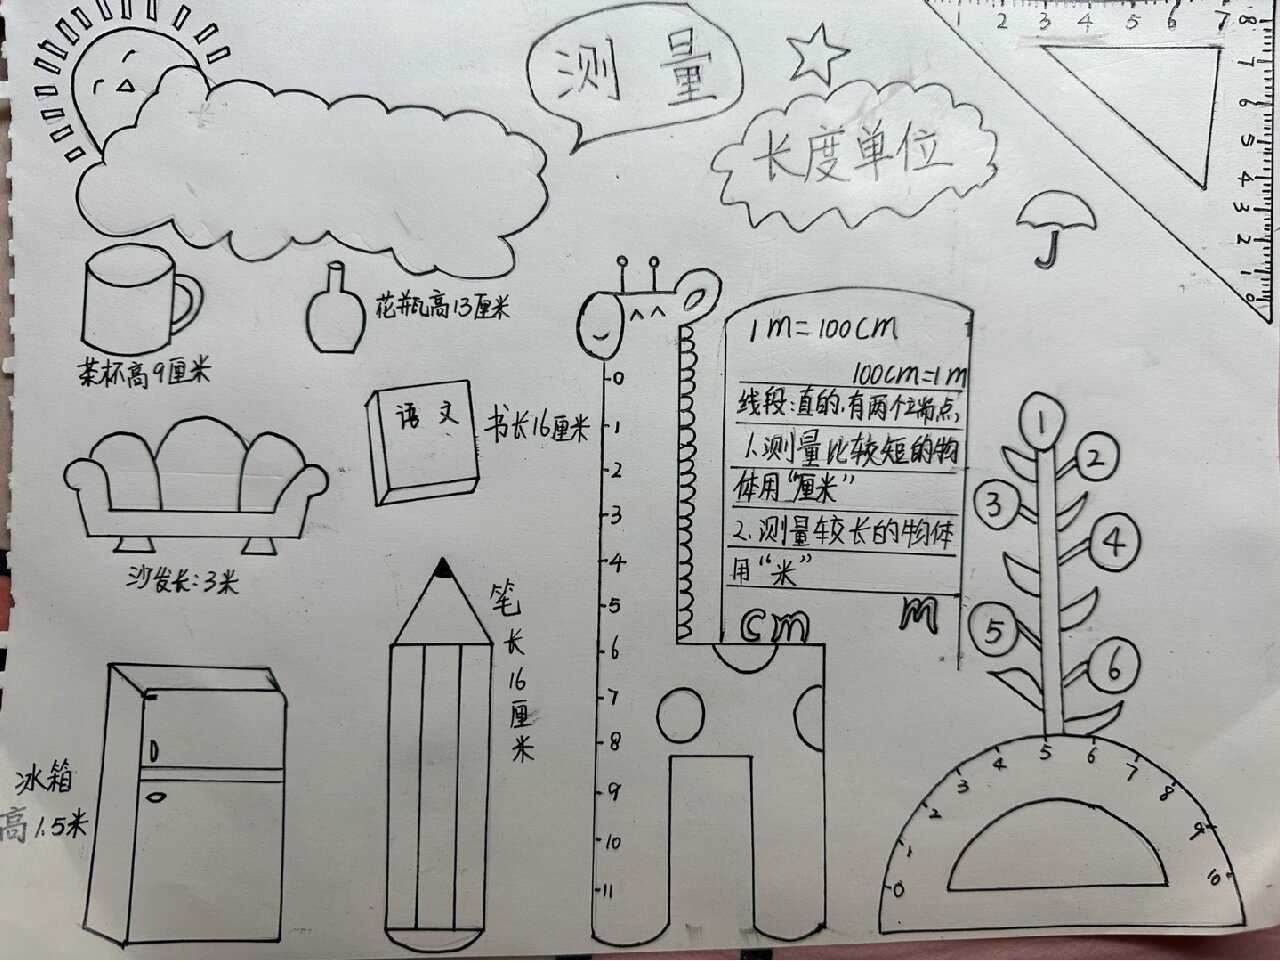 测 量
长度单位
1 2 3 4 5 6 7 8
7
6
5
4
3
2
1
0
花瓶高13厘米
茶杯高9厘米
语 文
书长16厘米
沙发长:3米
笔长16厘米
冰箱
高1.5米
0
1
2
3
4
5
6
7
8
9
10
11
1m=100cm
100cm=1m
线段:直的.有两个端点,
1.测量比较短的物
体用“厘米”
2.测量较长的物体
用“米”
cm
m
1
2
3
4
5
6
0 1 2 3 4 5 6 7 8 9 10